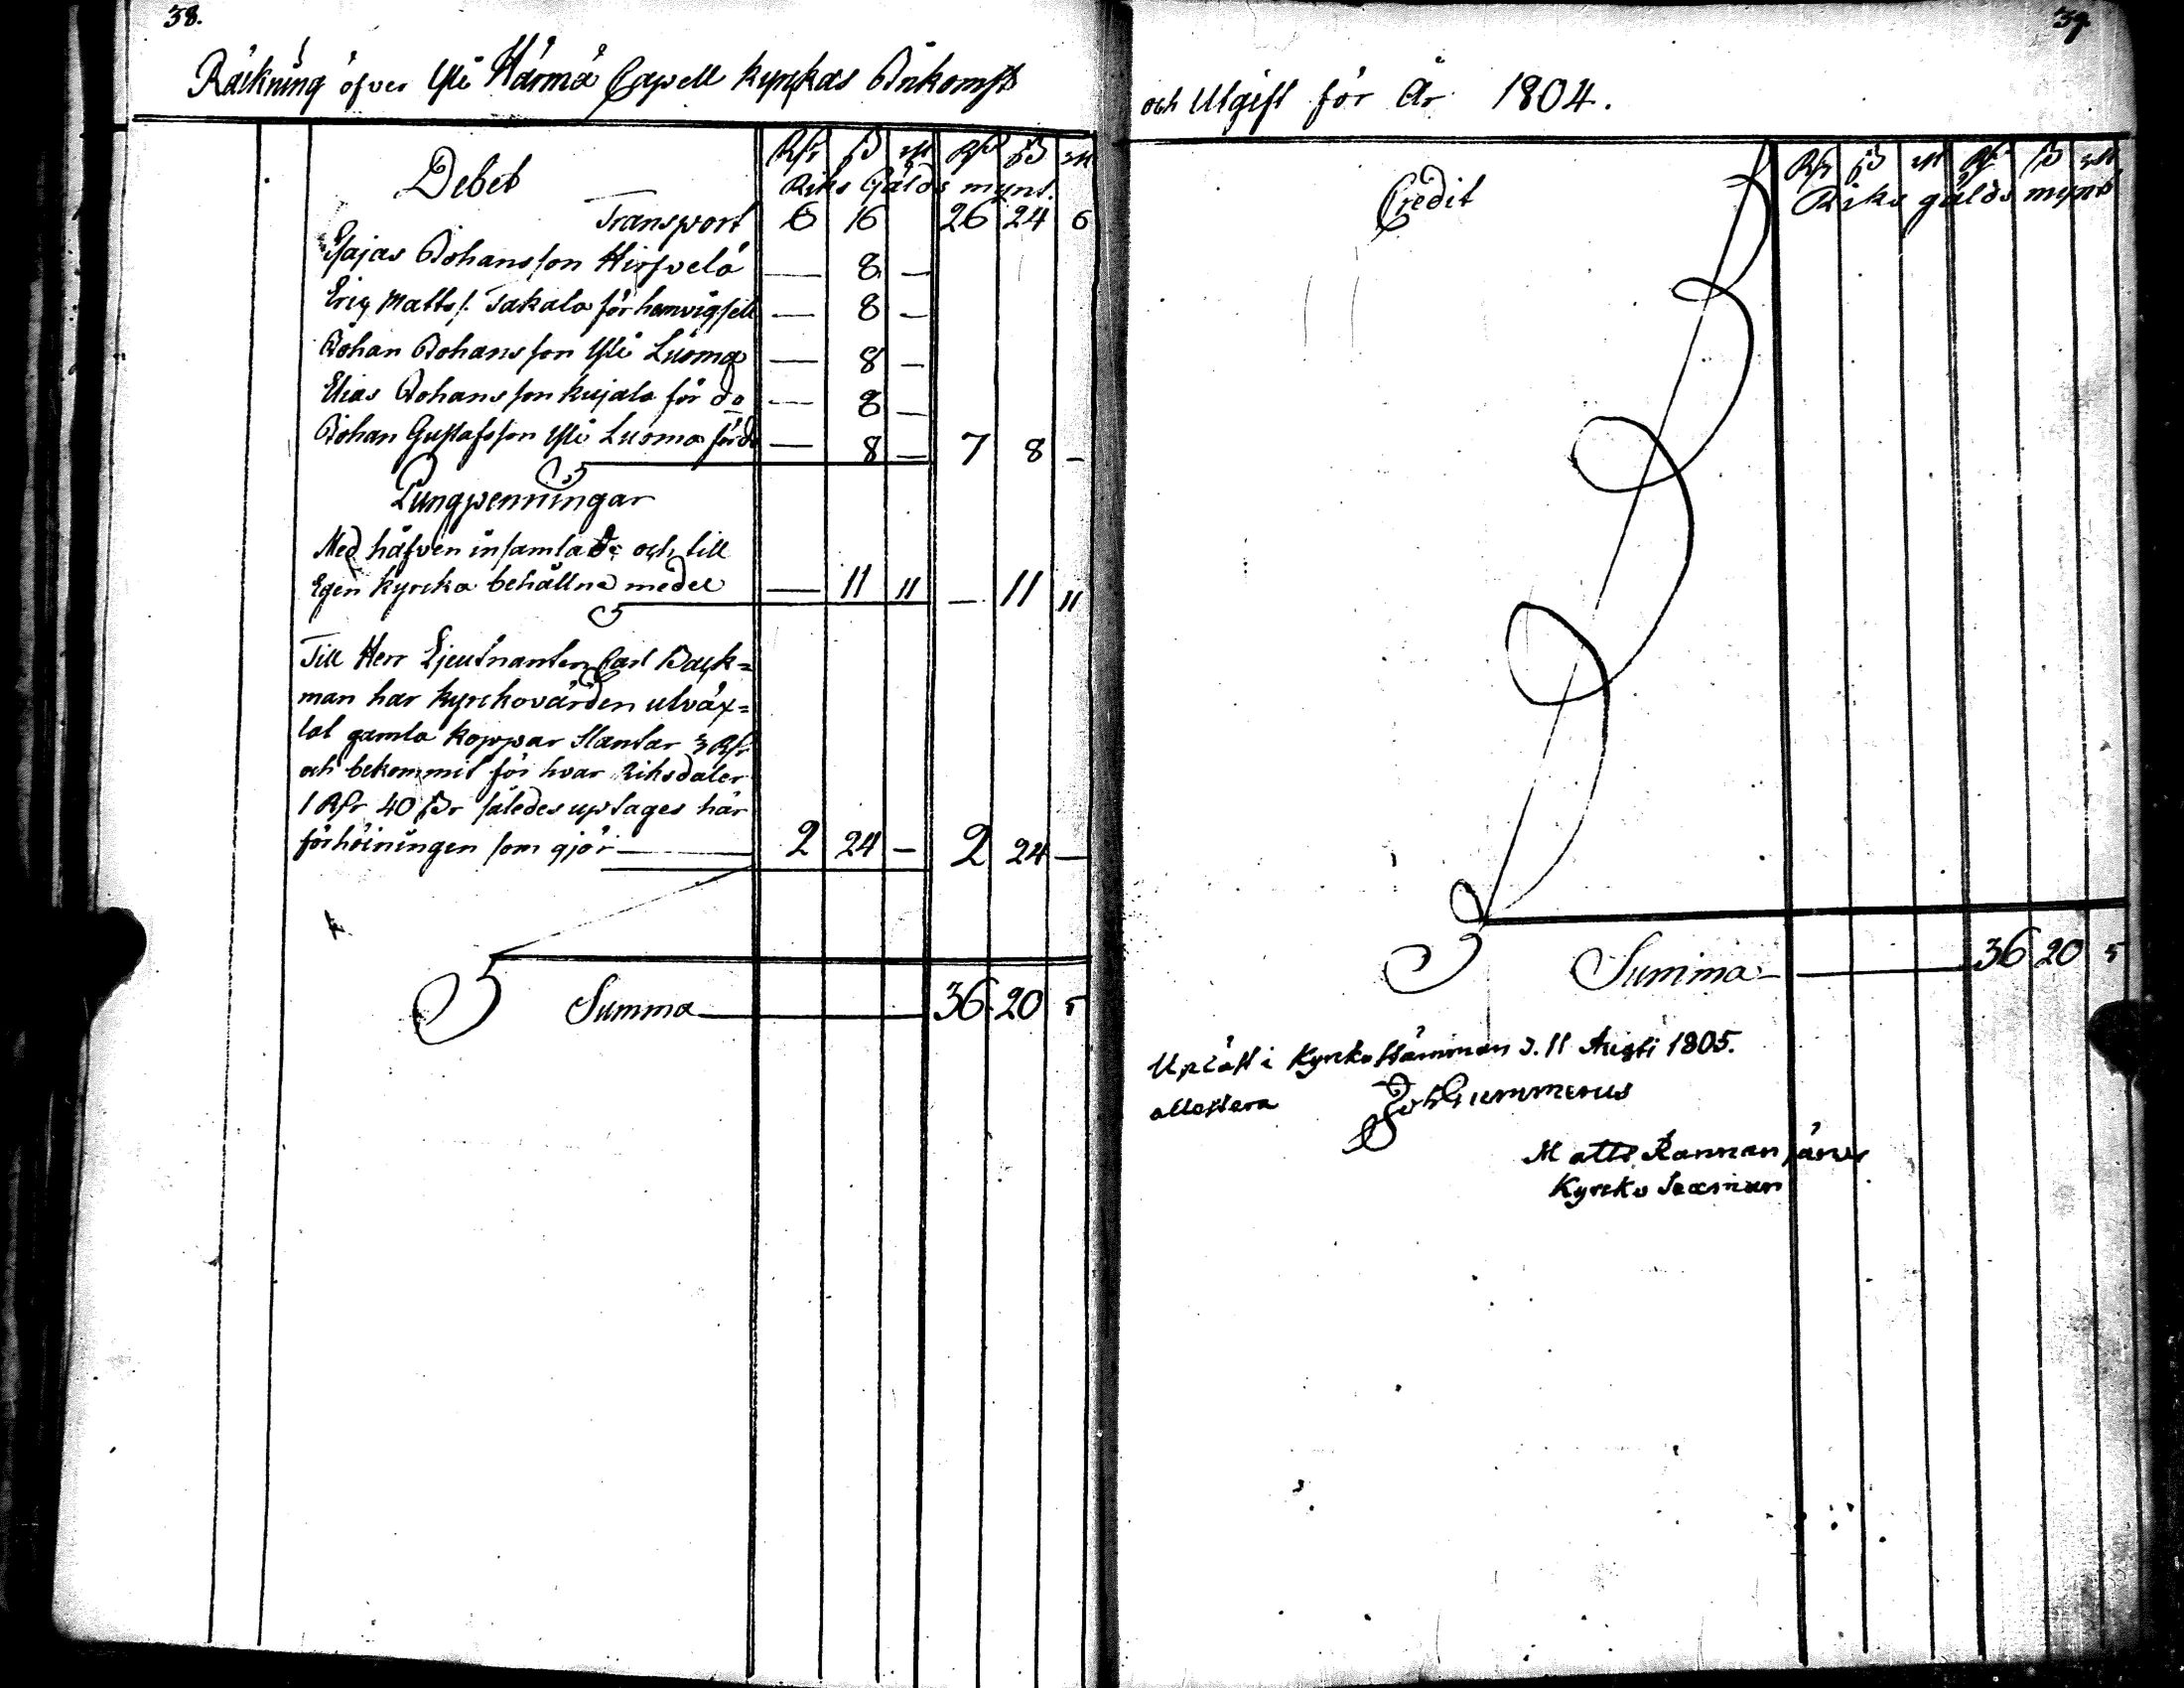 38.
Räckning öfver Yli Härmä Capell kyrckas Inkomst
Debet
Rdr ß rst Rdr ß rst
Riks Gälds mynt.
Transport 6 16 26 24 6
Esajas Johansson Hirfvelä — 8 —
Eriq Matts s. Takala för hemvigsell — 8 —
Johan Johansson Yli Luoma — 8 —
Elias Johansson Kujala för do — 8 —
Johan Gustafsson Yli Luoma för do — 8 — 7 8 —
Pungpenningar
Med håfven insamlade och till
Egen kyrcka behållne medel — 11 11 — 11 11
Till Herr Lieutnanten Carl Back=
man har kyrckovärden utväx=
lat gamla koppar slantar 3 Rdr
och bekommit för hvar Riksdaler
1 Rdr 40 ßr således uptages här
förhöiningen som gjör — 2 24 — 2 24 —
Summa — 36. 20 5
39
och Utgift för År 1804.
Credit
Rdr ß rst Rdr ß rst
Riks gälds mynt
Summa — 36 20 5
Upläst i Kyrkostämman d. 11 Augsti 1805.
attestera Joh Gummerus
Matts Rannanjärvi
Kyrcko Sexman